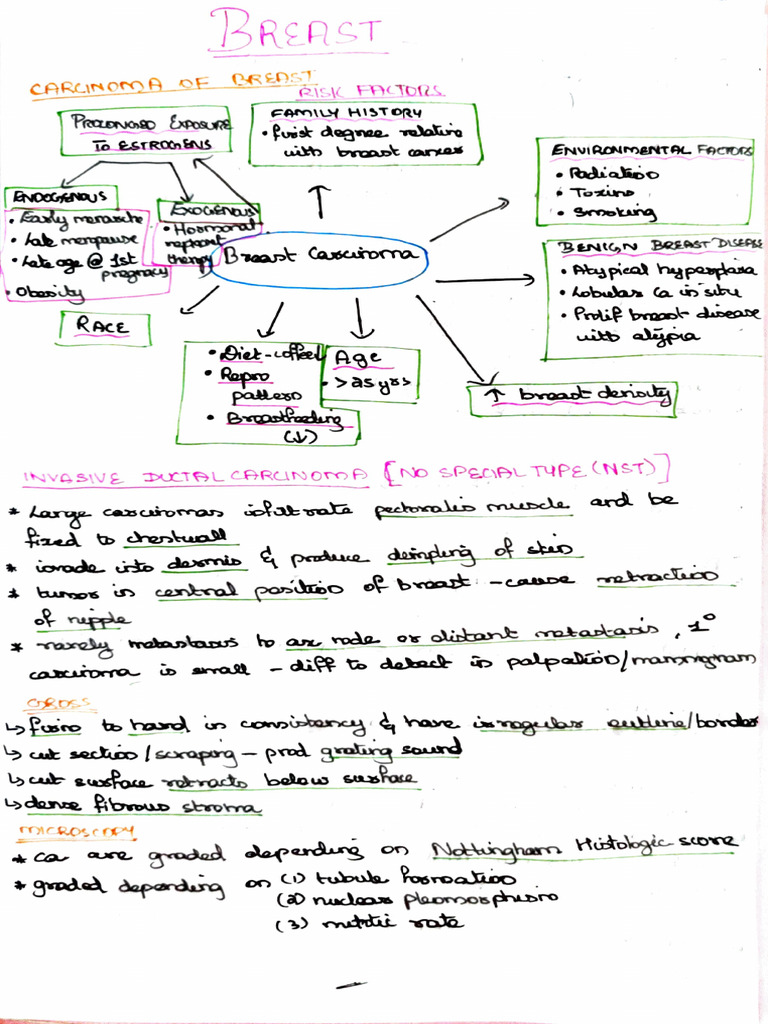 BREAST
CARCINOMA OF BREAST
RISK FACTORS
PROLONGED EXPOSURE
TO ESTROGENS
FAMILY HISTORY
• first degree relative
with breast cancer
ENVIRONMENTAL FACTORS
• Radiation
• Toxins
• Smoking
ENDOGENOUS
• Early menarche
• Late menopause
• Late age @ 1st
pregnancy
• Obesity
EXOGENOUS
• Hormonal
replacement
therapy
Breast Carcinoma
BENIGN BREAST DISEASE
• Atypical hyperplasia
• Lobular ca in situ
• Prolif breast disease
with atypia
RACE
• Diet - coffee
• Repro
pattern
• Breastfeeding
(↓)
Age
• >25 yrs
↑ breast density
INVASIVE DUCTAL CARCINOMA [NO SPECIAL TYPE (NST)]
* Large carcinomas infiltrate pectoralis muscle and be
fixed to chestwall
* invade into dermis & produce dimpling of skin
* tumor in central position of breast - cause retraction
of nipple
* rarely metastasis to ax node or distant metastasis, 1°
carcinoma is small - diff to detect in palpation/mammogram
GROSS
↳ firm to hard in consistency & have irregular outline/border
↳ cut section/scraping - prod grating sound
↳ cut surface retracts below surface
↳ dense fibrous stroma
MICROSCOPY
* ca are graded depending on Nottingham Histologic score
* graded depending on (1) tubule formation
(2) nuclear pleomorphism
(3) mitotic rate